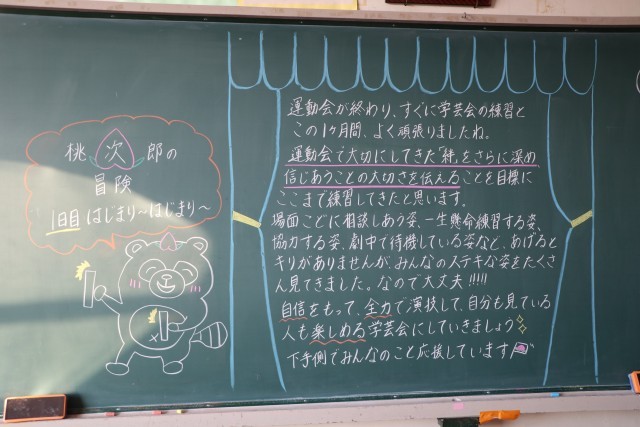 桃次郎の
冒険
1日目 はじまり〜はじまり〜
運動会が終わり、すぐに学芸会の練習と
この1ヶ月間、よく頑張りましたね。
運動会で大切にしてきた「絆」をさらに深め
信じあうことの大切さを伝えることを目標に
ここまで練習してきたと思います。
場面ごとに相談しあう姿、一生懸命練習する姿、
協力する姿、劇中で待機している姿など、あげると
キリがありませんが、みんなのステキな姿をたくさ
ん見てきました。なので大丈夫!!!!!
自信をもって、全力で演技して、自分も見ている
人も楽しめる学芸会にしていきましょう
下手側でみんなのこと応援しています